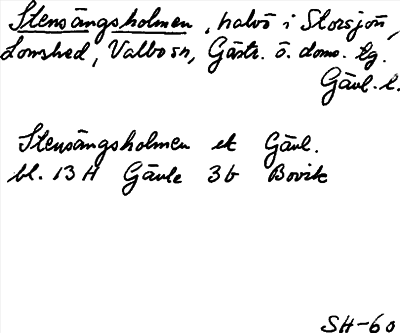 Stensängsholmen, halvö i Storsjön,
Lomshed, Valbo sn, Gästr. ö. doms. tg.
Gävl. l.
Stensängsholmen ek Gävl.
bl. 13 H Gävle 3b Bovik
SH-60